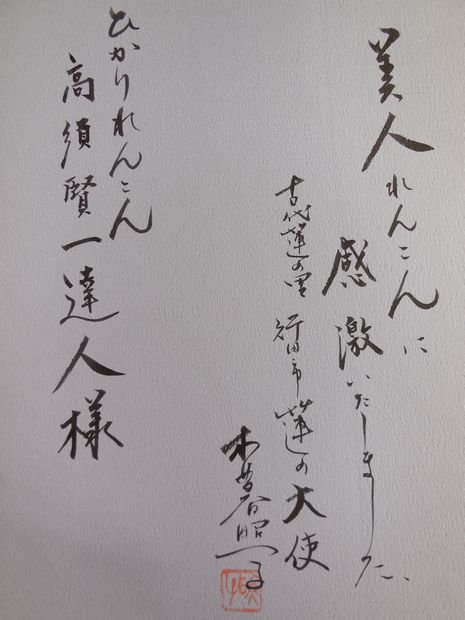 美人れんこんに
感激いたしました、
古代蓮の里 行田市 蓮の大使
木暮照子
ひかりれんこん
高須賢一達人様